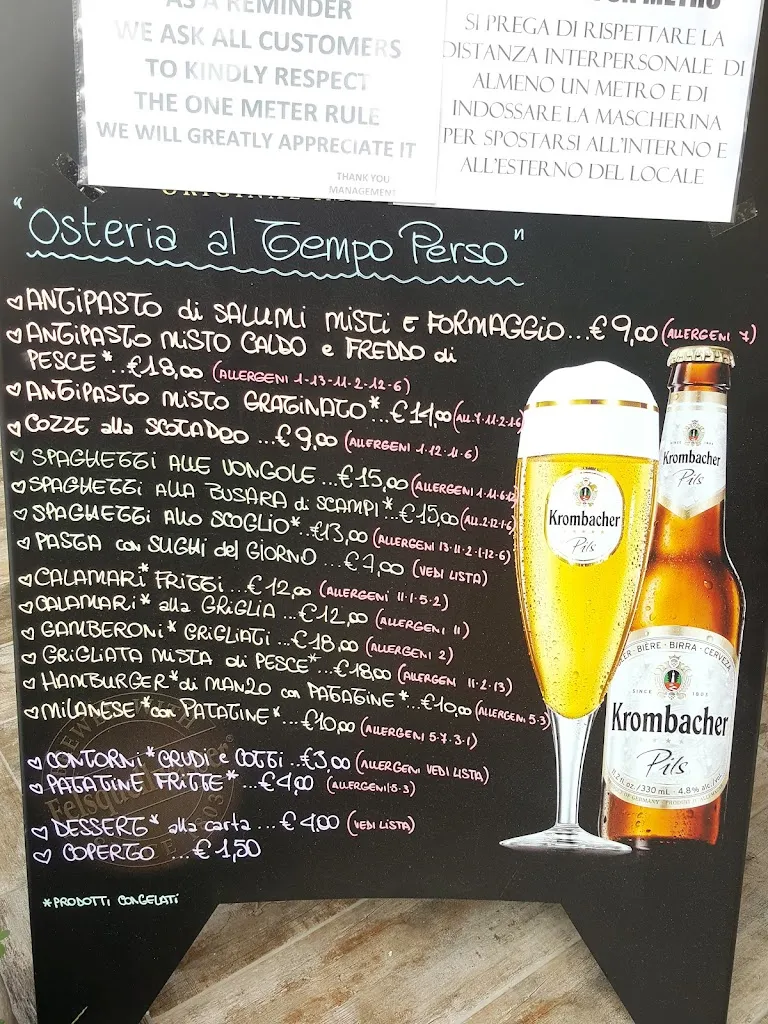 AS A REMINDER
WE ASK ALL CUSTOMERS
TO KINDLY RESPECT
THE ONE METER RULE
WE WILL GREATLY APPRECIATE IT
THANK YOU
MANAGEMENT
METRO
SI PREGA DI RISPETTARE LA
DISTANZA INTERPERSONALE DI
ALMENO UN METRO E DI
INDOSSARE LA MASCHERINA
PER SPOSTARSI ALL'INTERNO E
ALL'ESTERNO DEL LOCALE
"Osteria al Tempo Perso"
ANTIPASTO di SALUMI MISTI E FORMAGGIO...€ 9,00 (ALLERGENI 7)
ANTIPASTO MISTO CALDO e FREDDO di
PESCE*...€18,00 (ALLERGENI 1-13-11-2-12-6)
ANTIPASTO MISTO GRATINATO*...€14,00 (ALL.7-11-2-1-6
COZZE alla SCOTADEO ...€ 9,00 (ALLERGENI 1-12-11-6)
SPAGHETTI ALLE VONGOLE...€15,00 (ALLERGENI 1-11-6-12)
SPAGHETTI ALLA BUSARA di SCAMPI*...€15,00 (ALL.2-12-1-6)
SPAGHETTI ALLO SCOGLIO*...€13,00 (ALLERGENI 13-11-2-1-12-6)
PASTA con SUGHI del GIORNO ...€7,00 (VEDI LISTA)
CALAMARI* FRITTI ...€ 12,00 (ALLERGENI 11-1-5-2)
CALAMARI* alla GRIGLIA ...€12,00 (ALLERGENI 11)
GAMBERONI* GRIGLIATI ...€18,00 (ALLERGENI 2)
GRIGLIATA MISTA di PESCE*...€18,00 (ALLERGENI 11-2-13)
HAMBURGER* di MANZO con PATATINE*...€10,00 (ALLERGENI 5-3)
MILANESE* con PATATINE*...€10,00 (ALLERGENI 5-7-3-1)
CONTORNI* CRUDI e COTTI ...€3,00 (ALLERGENI VEDI LISTA)
PATATINE FRITTE*...€4,00 (ALLERGENI 5-3)
DESSERT* alla carta ...€ 4,00 (VEDI LISTA)
COPERTO ...€ 1,50
*PRODOTTI CONGELATI
Krombacher
Pils
Krombacher
Pils
BEER - BIÈRE - BIRRA - CERVEZA
SINCE 1803
Krombacher
Pils
11.2fl.oz./330 mL - 4.8% alc./vol.